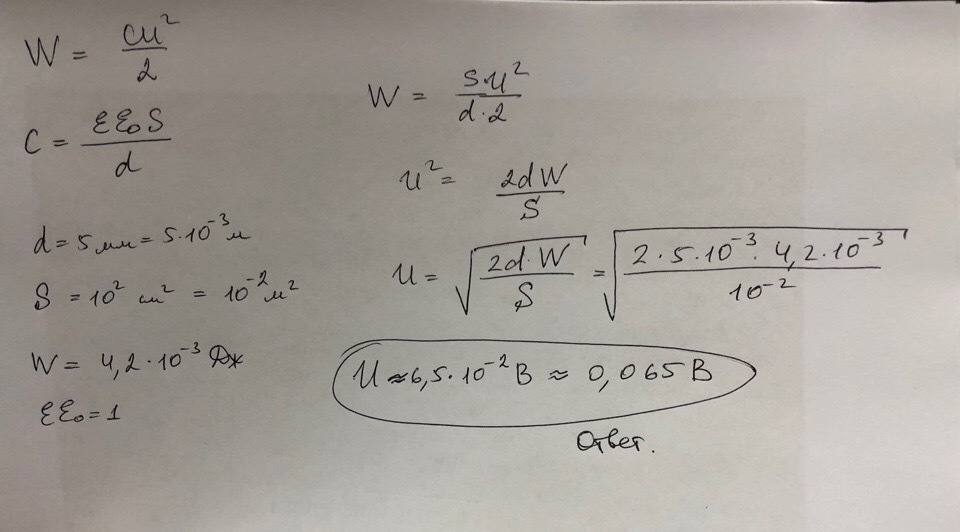 W = cu²/2
C = εε₀S/d
d = 5 мм = 5·10⁻³ м
S = 10² см² = 10⁻² м²
W = 4,2·10⁻³ Дж
εε₀ = 1
W = S·u²/d·2
u² = 2dW/S
u = √(2d·W/S) = √(2·5·10⁻³·4,2·10⁻³/10⁻²)
u ≈ 6,5·10⁻² В ≈ 0,065 В
Ответ.